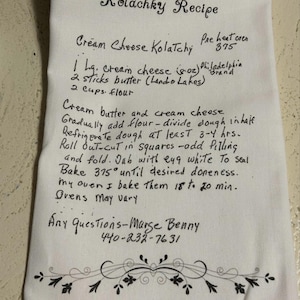 Kolachky Recipe
Cream Cheese Kolatchy Pre heat oven 375
1 Lg. cream cheese (8-oz) Philadelphia Brand
2 sticks butter (Lando Lakes)
2 cups flour
Cream butter and cream cheese
Gradually add flour - divide dough in half
Refrigerate dough at least 3-4 hrs.
Roll out-cut in squares - add filling
and fold. Dab with egg white to seal
Bake 375° until desired doneness.
My oven I bake them 18 to 20 min.
Ovens May vary
Any Questions - Marge Benny
440-232-7631